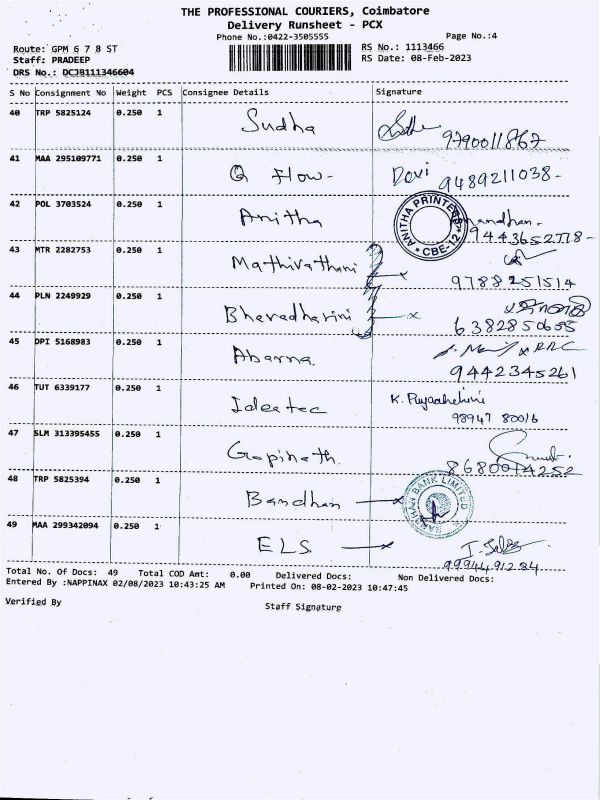 THE PROFESSIONAL COURIERS, Coimbatore
Delivery Runsheet - PCX
Phone No.:0422-3505555 Page No.:4
Route: GPM 6 7 8 ST RS No.: 1113466
Staff: PRADEEP RS Date: 08-Feb-2023
DRS No.: DCJB111346604
S No Consignment No Weight PCS Consignee Details Signature
40 TRP 5825124 0.250 1 Sudha
9790011867
41 MAA 295109771 0.250 1 Q Flow - Devi 9489211038-
42 POL 3703524 0.250 1 Anitha
ANITHA PRINTERS * CBE-12 *
9443652778-
43 MTR 2282753 0.250 1 Mathivathani
9788251514
44 PLN 2249929 0.250 1 Bharadharini
6382850655
45 DPI 5168983 0.250 1 Abarna
9442345261
46 TUT 6339177 0.250 1 Ideatec K.
98947 80016
47 SLM 313395455 0.250 1 Gopinath.
8680014252
48 TRP 5825394 0.250 1 Bandhan
BANDHAN BANK LIMITED
49 MAA 299342094 0.250 1 ELS
9994491284
Total No. Of Docs: 49 Total COD Amt: 0.00 Delivered Docs: Non Delivered Docs:
Entered By :NAPPINAX 02/08/2023 10:43:25 AM Printed On: 08-02-2023 10:47:45
Verified By Staff Signature